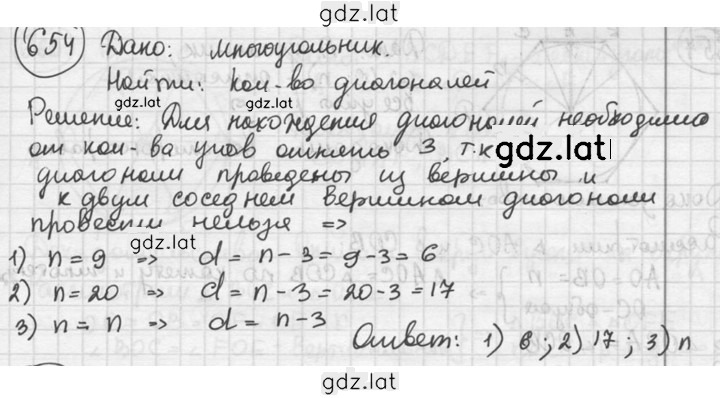 gdz.lat
654 Дано: многоугольник.
Найти: кол-во диагоналей
gdz.lat
Решение: Для нахождения диагоналей необходимо
от кол-ва углов отнять 3 т.к
gdz.lat
диагонали проведены из вершины и
к двум соседнем вершинам диагонали
провести нельзя =>
gdz.lat
1) n = 9 => d = n - 3 = 9 - 3 = 6
2) n = 20 => d = n - 3 = 20 - 3 = 17
3) n = n => d = n - 3
Ответ: 1) 6; 2) 17; 3) n
gdz.lat